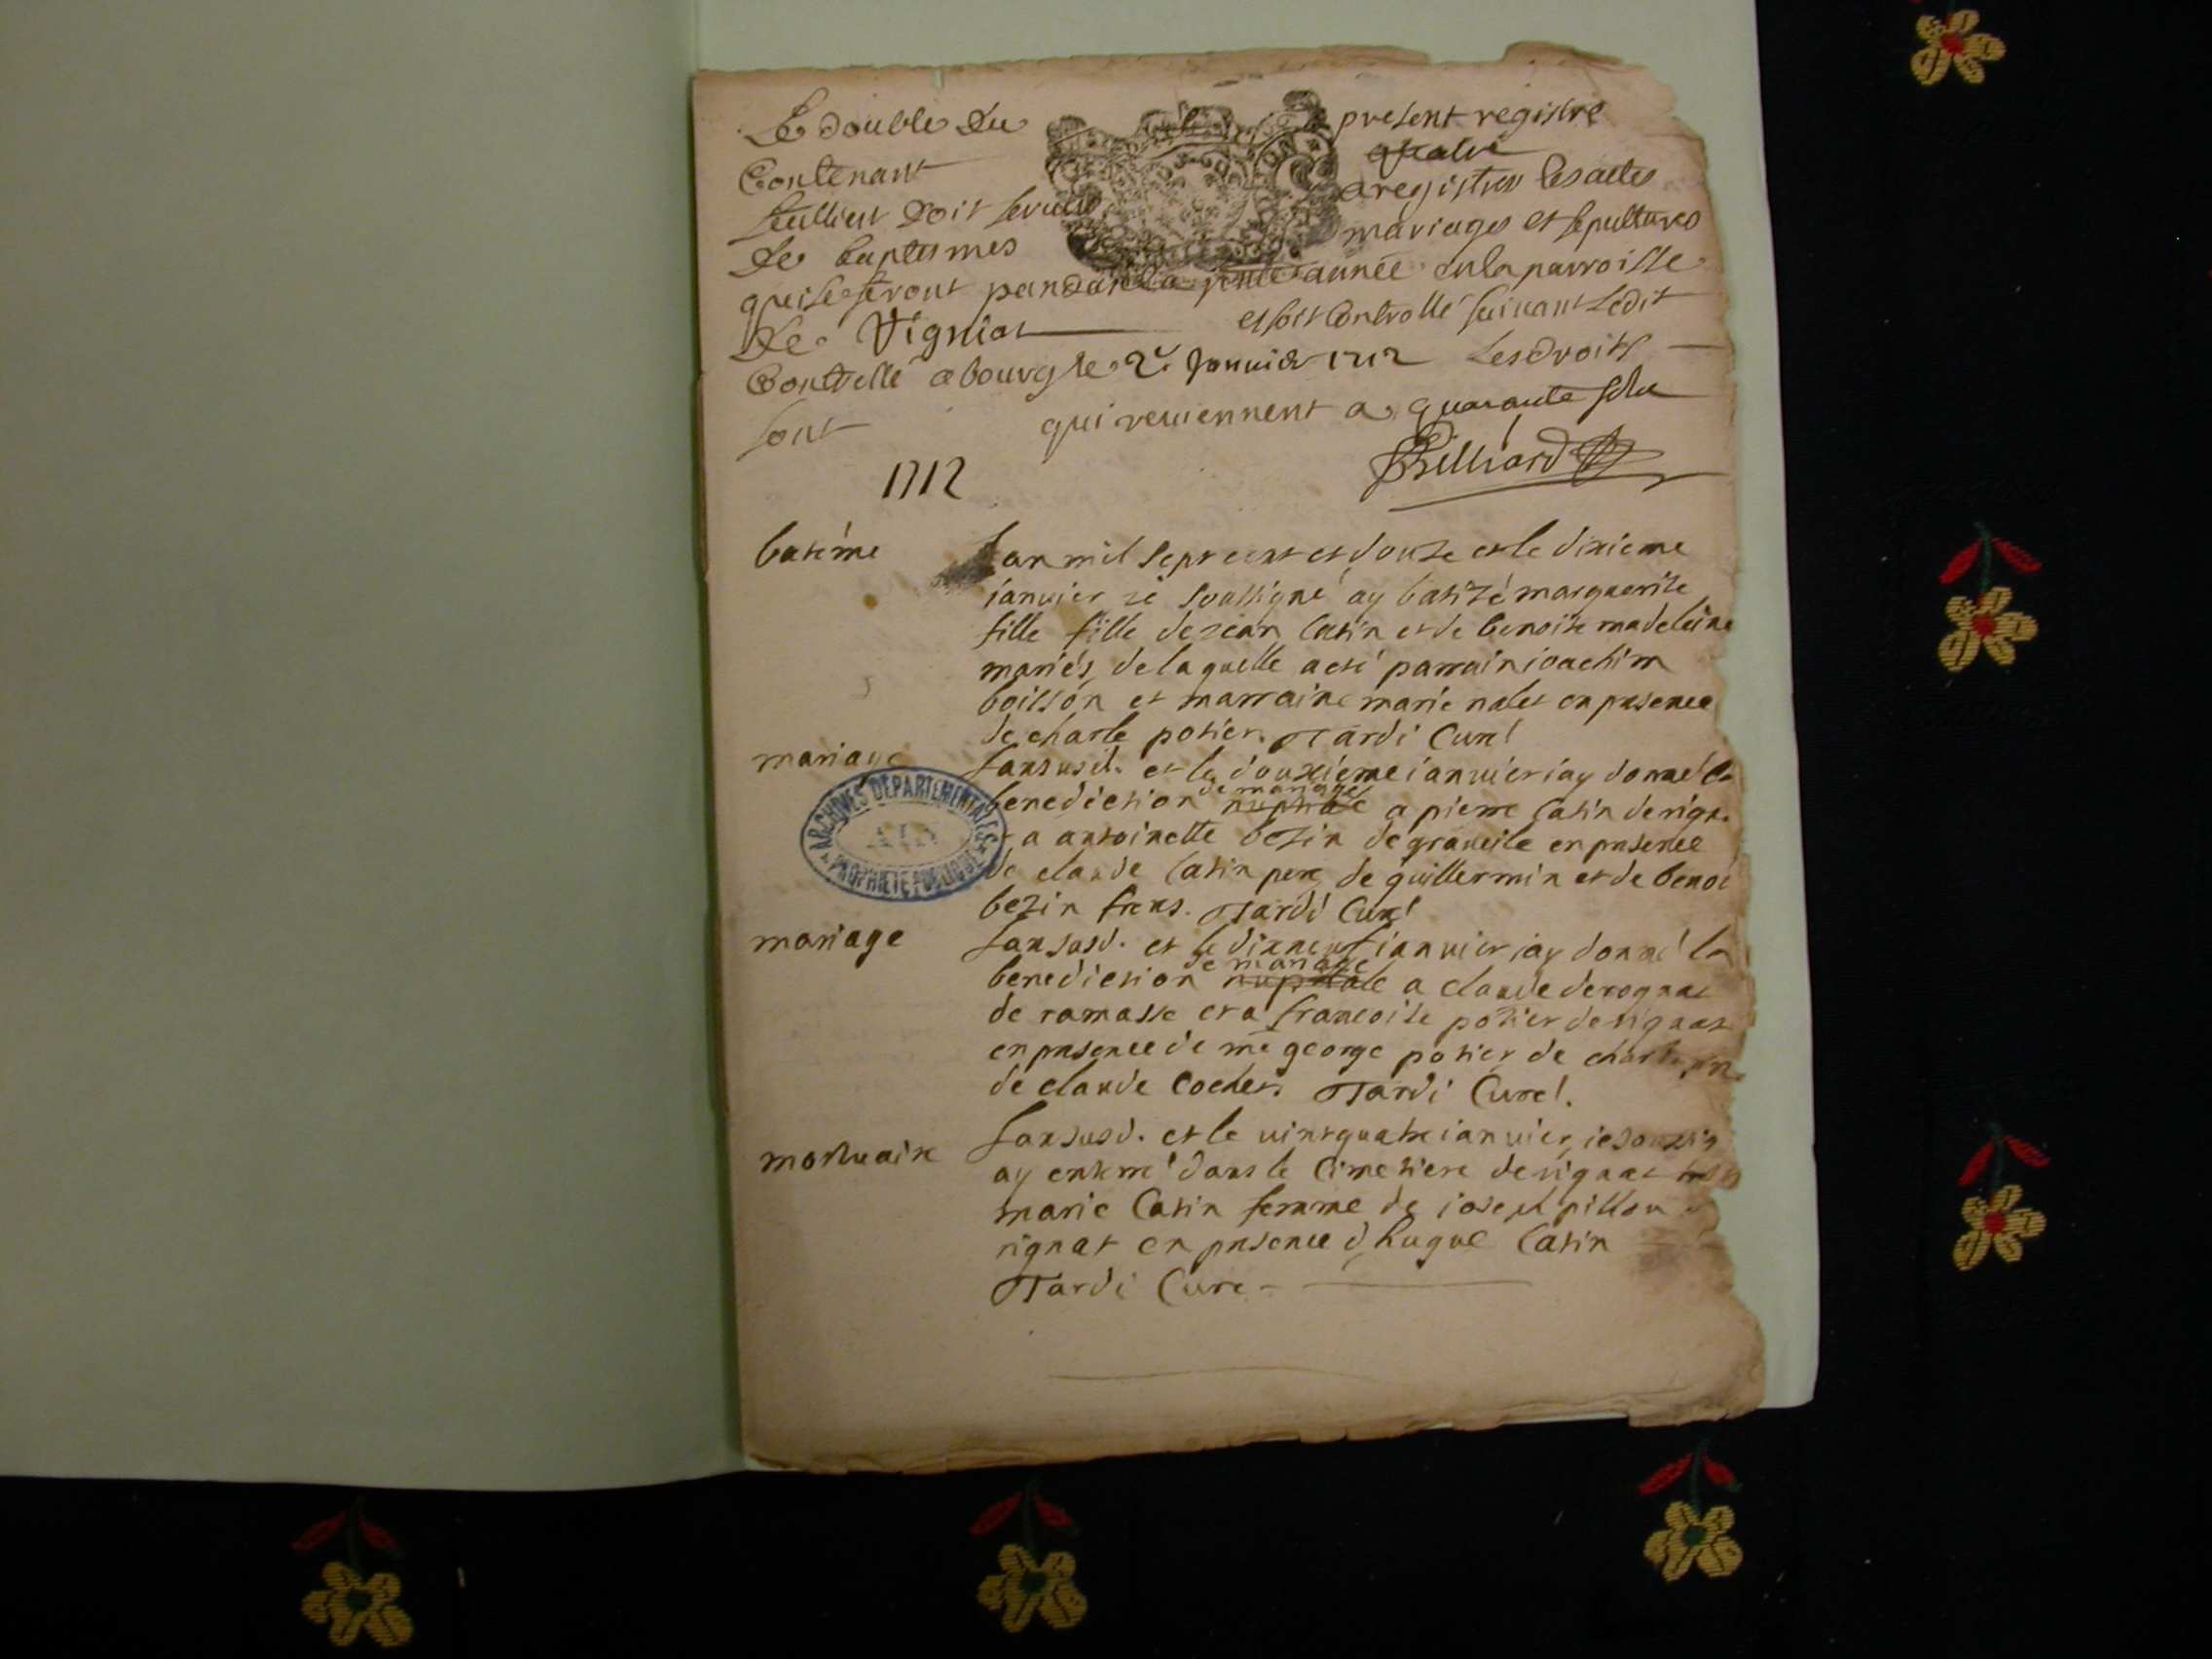 Le double du present registre
Contenant quatre
feulliets doit servir a registrer les actes
de baptesmes mariages et sepultures
qui se feront pandant la pnte année en la parroisse
de Vigniat et soit Controllé suivant Ledit
Controllé a bourg le 2e Janvier 1712 Les droits
sont qui reviennent a quarante sols
Billiard
1712
batême Lan mil sept cent et douse et le dixieme
janvier ie soussigné ay batizé marguerite
fille fille de jean Catin et de benoite madeleine
mariés, de laquelle a eté parrain ioachim
boisson et marraine marie nalet en presence
de charle potier. Tardi Curé
mariage Lan susd. et le douxieme ianvier iay donné la
benediction nuptiale de mariage a pierre Catin de rigna
a antoinette bezin de graveile en presence
de claude Catin pere, de guillermin et de benoi
bezin freres. Tardi Curé
mariage Lan susd. et le dixneuf ianvier iay donné la
benediction nuptiale de mariage a claude derognat
de ramasse et a francoise potier de rignat
en presence de me george potier de
de claude Cochet. Tardi Curé.
mortuaire Lan susd. et le vintquatre ianvier, ie soussig
ay enterré dans le Cimetiere de rignat
marie Catin femme de iosept pillon
rignat en presence d'hugue Catin
Tardi Cure
ARCHIVES DEPARTEMENTALES
AIN
PROPRIETE PUBLIQUE